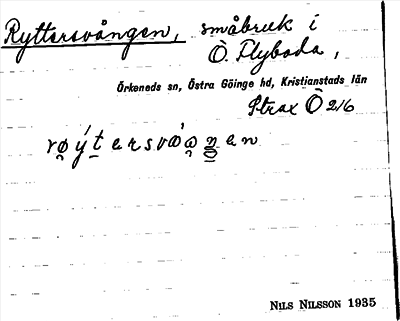 Ryttersvången, småbruk i
Ö. Flyboda,
Örkeneds sn, Östra Göinge hd, Kristianstads län
Strax Ö 2/6
NILS NILSSON 1935